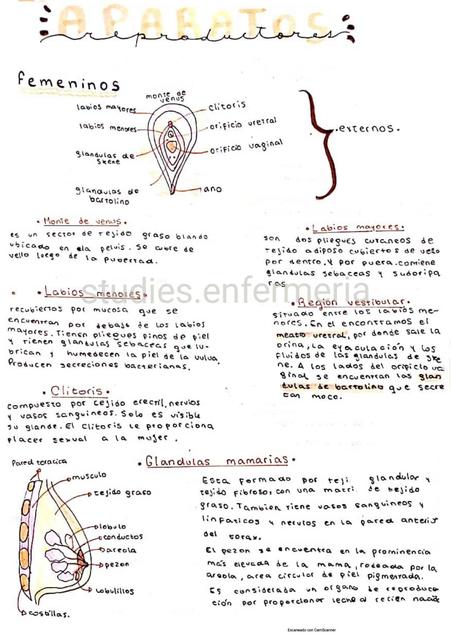 APARATOS
reproductores
Femeninos
monte de
venus
labios mayores
clitoris
labios menores
orificio uretral
orificio vaginal
glandulas de
skene
glandulas de
bartolino
ano
externos.
• Monte de venus •
es un sector de tejido graso blando
ubicado en ela pelvis. Se cubre de
vello luego de la pubertad.
• Labios mayores •
son dos pliegues cutaneos de
tejido adiposo cubiertos de vello
por dentro, y por fuera. comiene
glandulas sebaceas y sudoripa
ras
studies.enfermeria
• Labios menores •
recubiertos por mucosa que se
encuentran por debajo de los labios
mayores. Tienen pliegues finos de piel
y tienen glandulas sebaceas que lu-
brican y humedecen la piel de la vulva.
Producen secreciones bacterianas.
• Region vestibular •
situado entre los labios me-
nores. En el encontramos el
meato uretral, por donde sale la
orina, la eyaculación y los
fluidos de las glandulas de ske
ne. A los lados del orificio va
ginal se encuentran las glan
dulas de bartolino que secre
tan moco.
• Clitoris •
compuesto por tejido erectil, nervios
y vasos sanguineos. Solo es visible
su glande. El clitoris le proporciona
placer sexual a la mujer.
• Glandulas mamarias •
Pared toracica
musculo
tejido graso
lobulo
conductos
areola
pezon
lobulillos
costillas.
Esta formado por teji glandular y
tejido fibroso, con una matri de tejido
graso. Tambien tiene vasos sanguineos y
linfaticos y nervios en la pared anterio
del torax.
El pezon se encuentra en la prominencia
más elevada de la mama, rodeada por la
areola, area circular de piel pigmentada.
Es considerada un organo de reproduc
ción por proporcionar leche al recien nacid
Escaneado con CamScanner